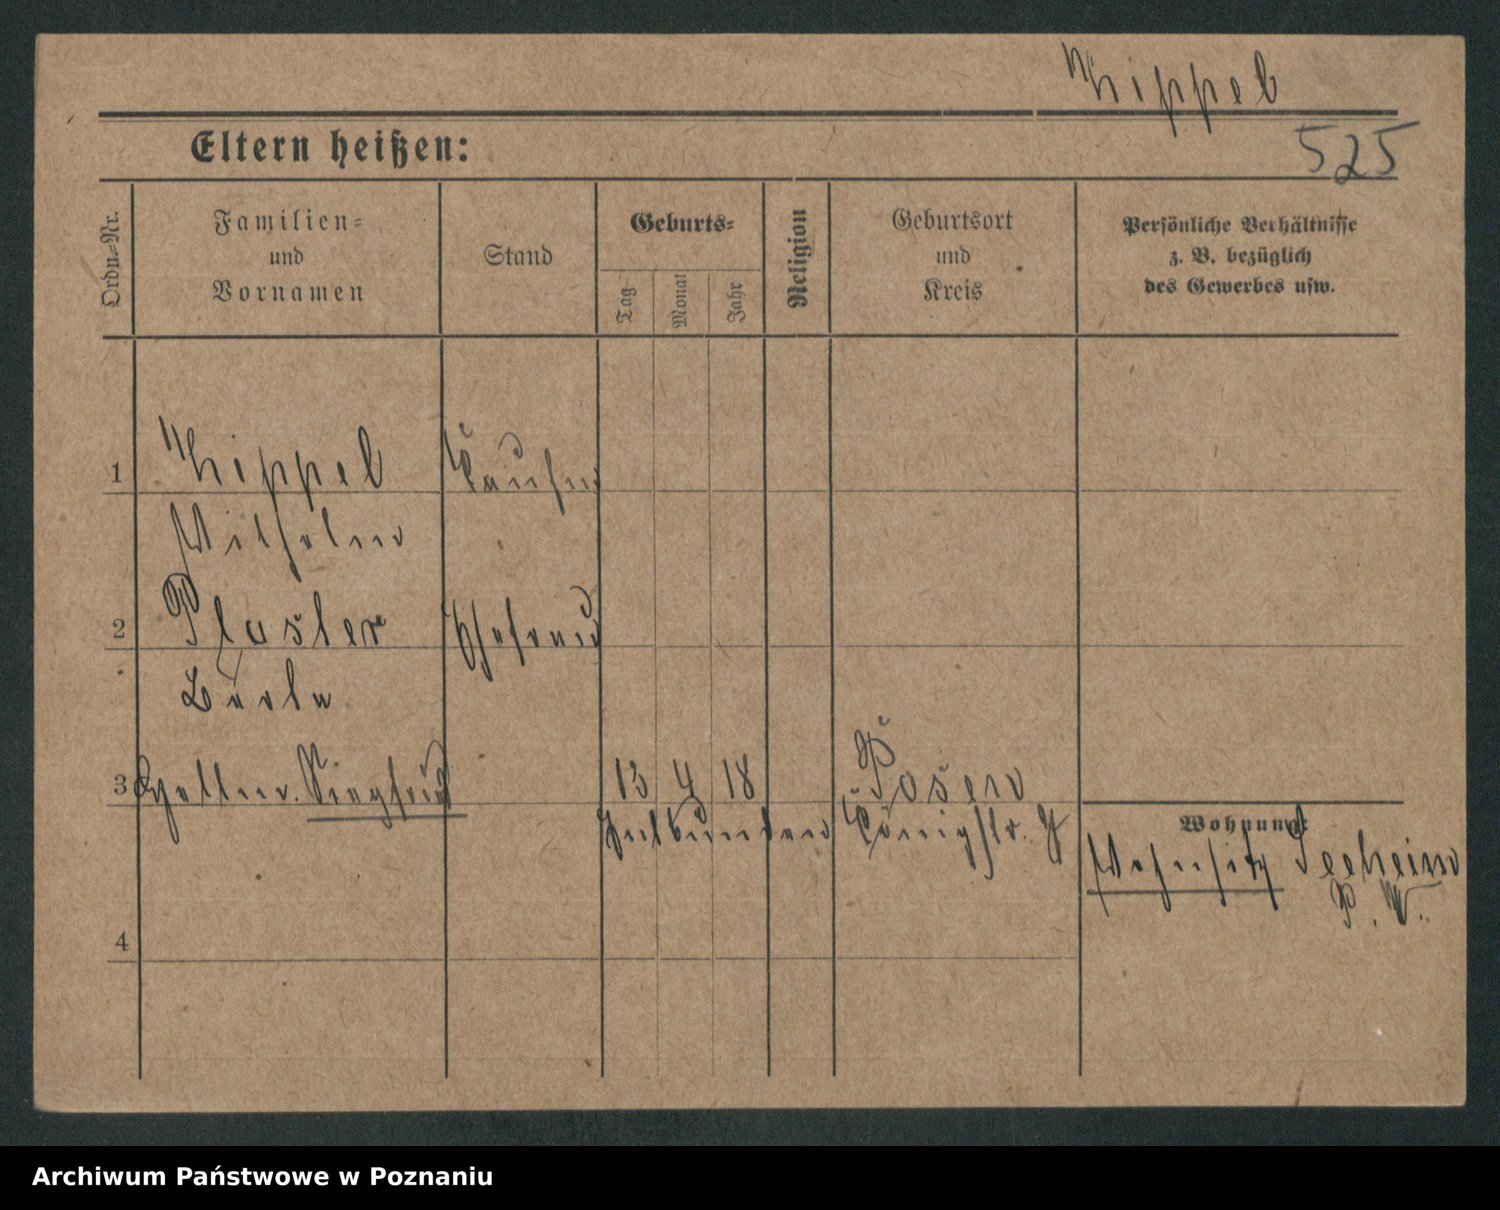 Hippel
525
Eltern heißen:
Ordn.-Nr.
Familien-
und
Vornamen
Stand
Geburts-
Tag
Monat
Jahr
Religion
Geburtsort
und
Kreis
Persönliche Verhältnisse
z. B. bezüglich
des Gewerbes usw.
1
Hippel
Wilhelm
2
Ehefrau
3
Siegfried
13 4 18
Entbunden
Posen
Königstr.
Wohnung:
Wohnsitz Seeheim
P. W.
4
Archiwum Państwowe w Poznaniu